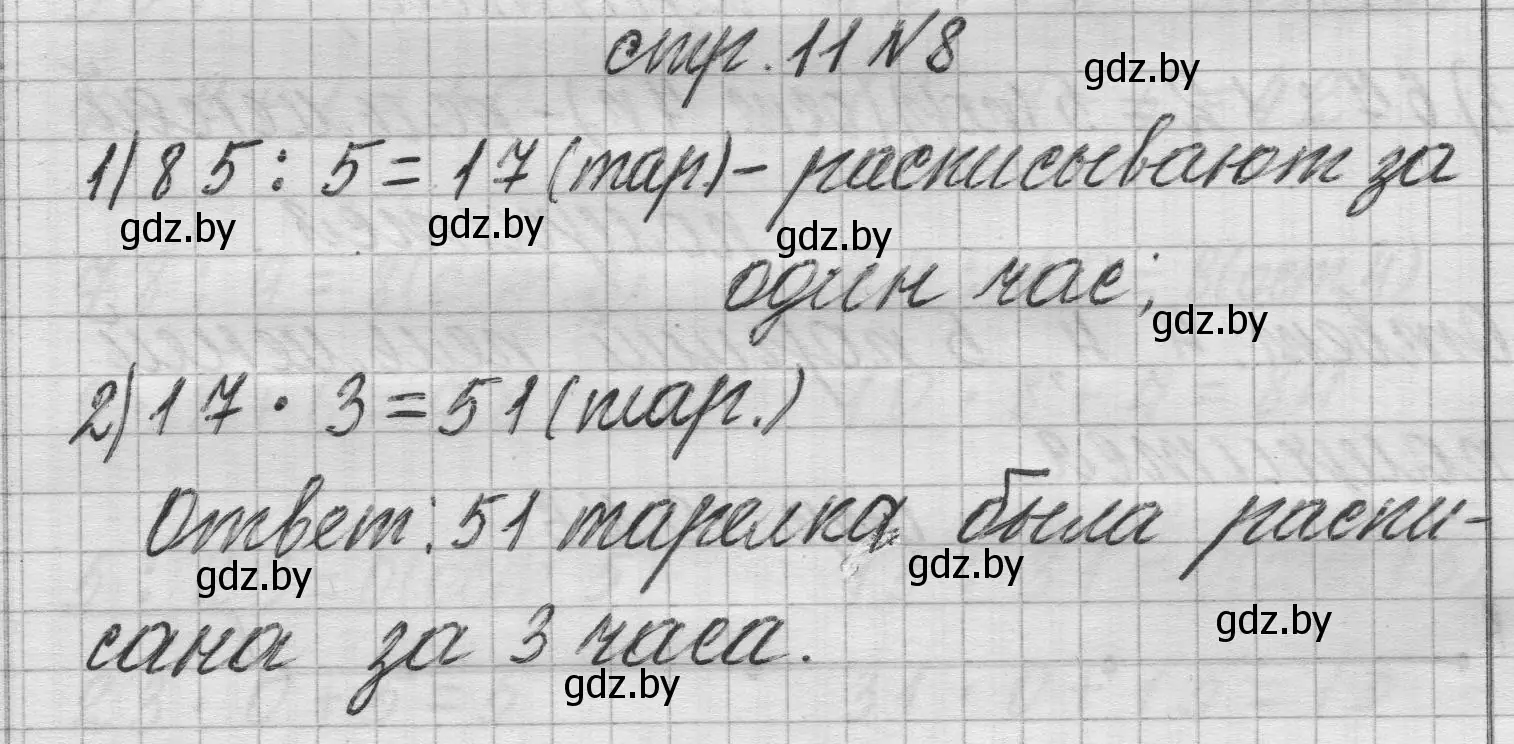 стр. 11 №8
gdz.by
1) 85 : 5 = 17 (тар) - расписывают за
gdz.by gdz.by gdz.by
один час;
gdz.by
2) 17 · 3 = 51 (тар.)
Ответ: 51 тарелка была распи-
gdz.by gdz.by
gdz.by
сана за 3 часа.
gdz.by